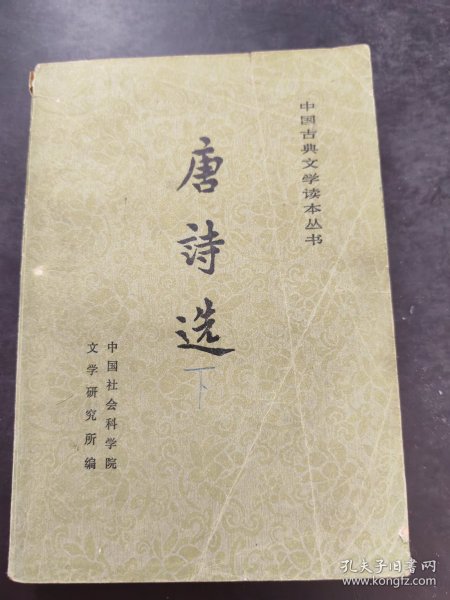 中国古典文学读本丛书
唐詩选
下
中国社会科学院
文学研究所编
孔夫子旧书网
www.kongfz.com